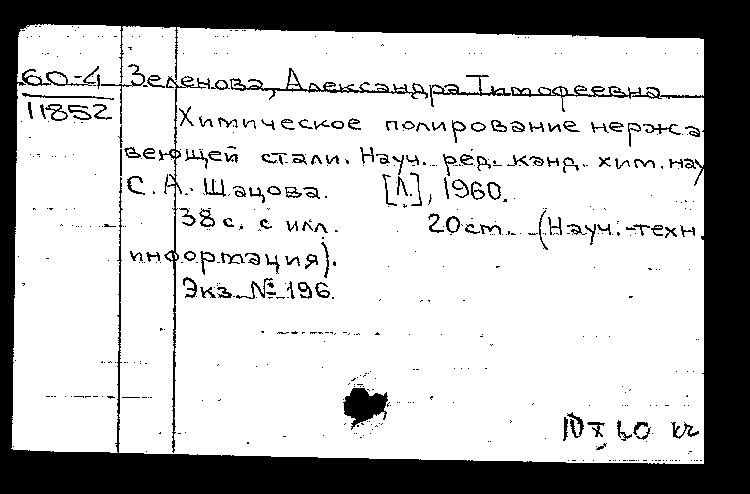 60-4 Зеленова, Александра Тимофеевна
11852
Химическое полирование нержа
веющей стали. Науч. ред. канд. хим. нау
С. А. Шацова. [Л.], 1960.
38 с. с илл. 20 ст. (Науч.-техн.
информация).
Экз. № 196.
60